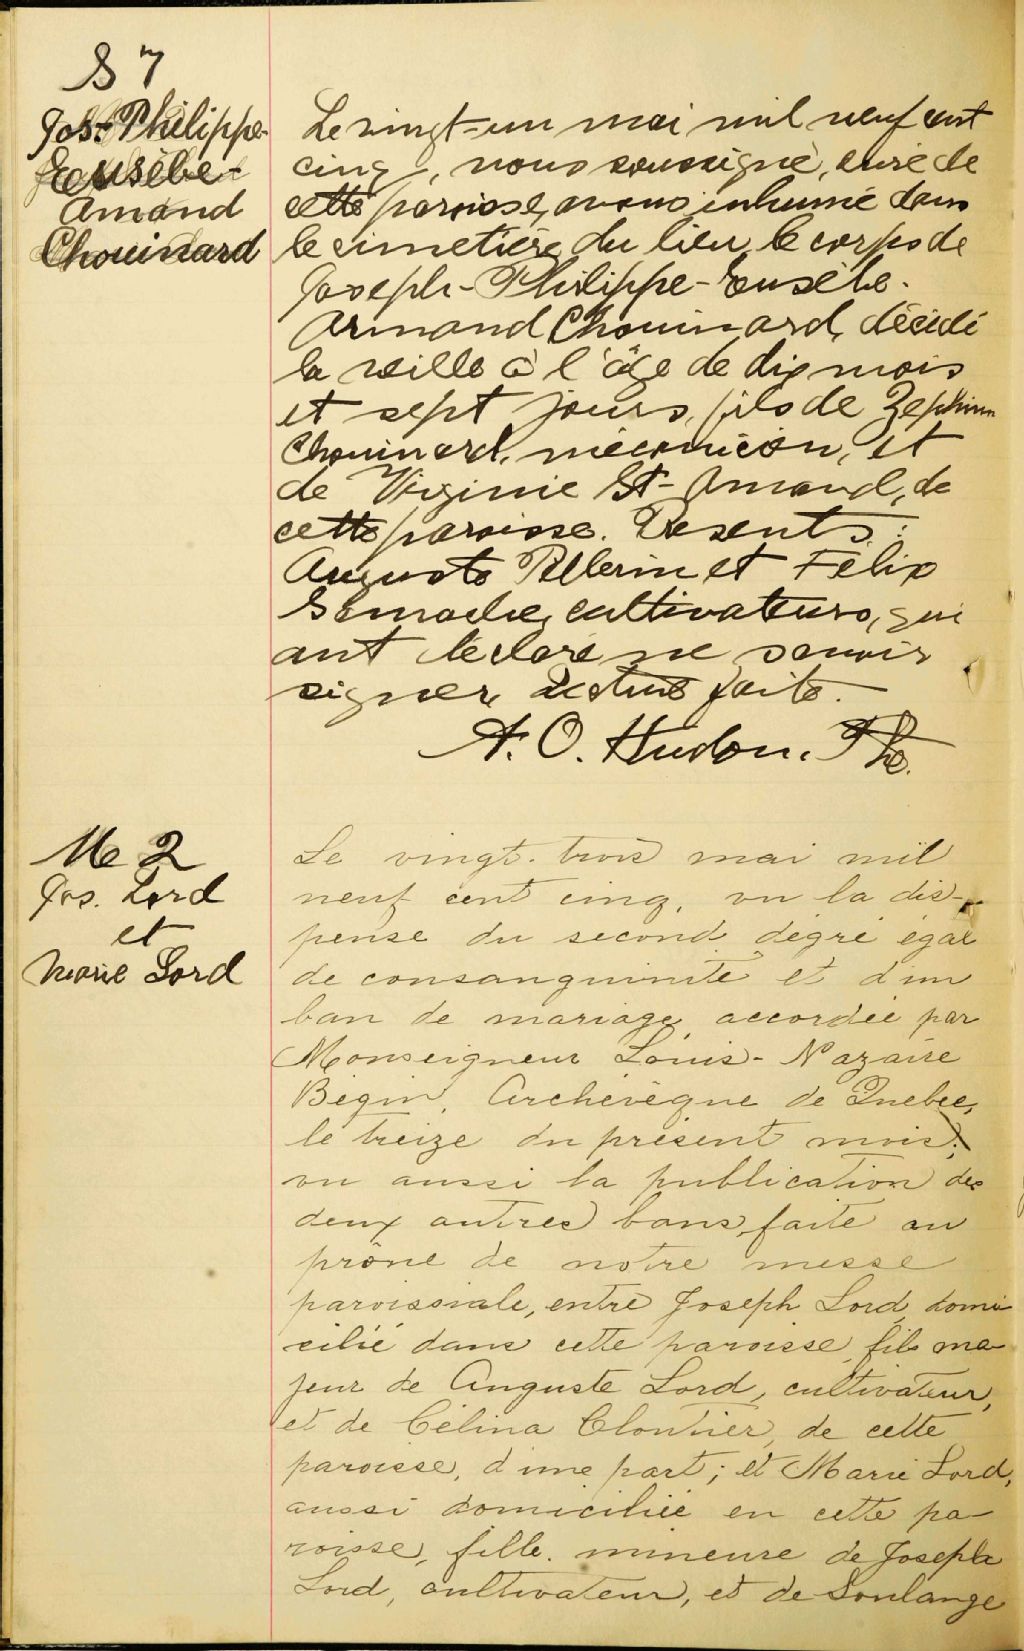 S 7
Jos-Philippe-
Eusèbe-
Amand
Chouinard
Le vingt-un mai mil neuf cent
cinq, nous soussigné, curé de
cette paroisse, avons inhumé dans
le cimetière du lieu le corps de
Joseph-Philippe-Eusèbe-
Armand Chouinard, décédé
la veille à l'âge de dix mois
et sept jours, fils de Zephirin
Chouinard, mécanicien, et
de Virginie St-Amand, de
cette paroisse. Présents :
Auguste Pellerin et Félix
cultivateurs, qui
ont déclaré ne savoir
signer. Lecture faite.
A. O. Hudon, Ptre.
M 2
Jos. Lord
et
Marie Lord
Le vingt-trois mai mil
neuf cent cinq, vu la dis-
pense du second dégré égal
de consanguinité et d'un
ban de mariage accordée par
Monseigneur Louis-Nazaire
Bégin, Archevêque de Québec,
le treize du présent mois;
vu aussi la publication des
deux autres bans faite au
prône de notre messe
paroissiale, entre Joseph Lord, domi-
cilié dans cette paroisse, fils ma-
jeur de Auguste Lord, cultivateur,
et de Célina Cloutier, de cette
paroisse, d'une part; et Marie Lord,
aussi domiciliée en cette pa-
roisse, fille mineure de Joseph
Lord, cultivateur, et de Soulange